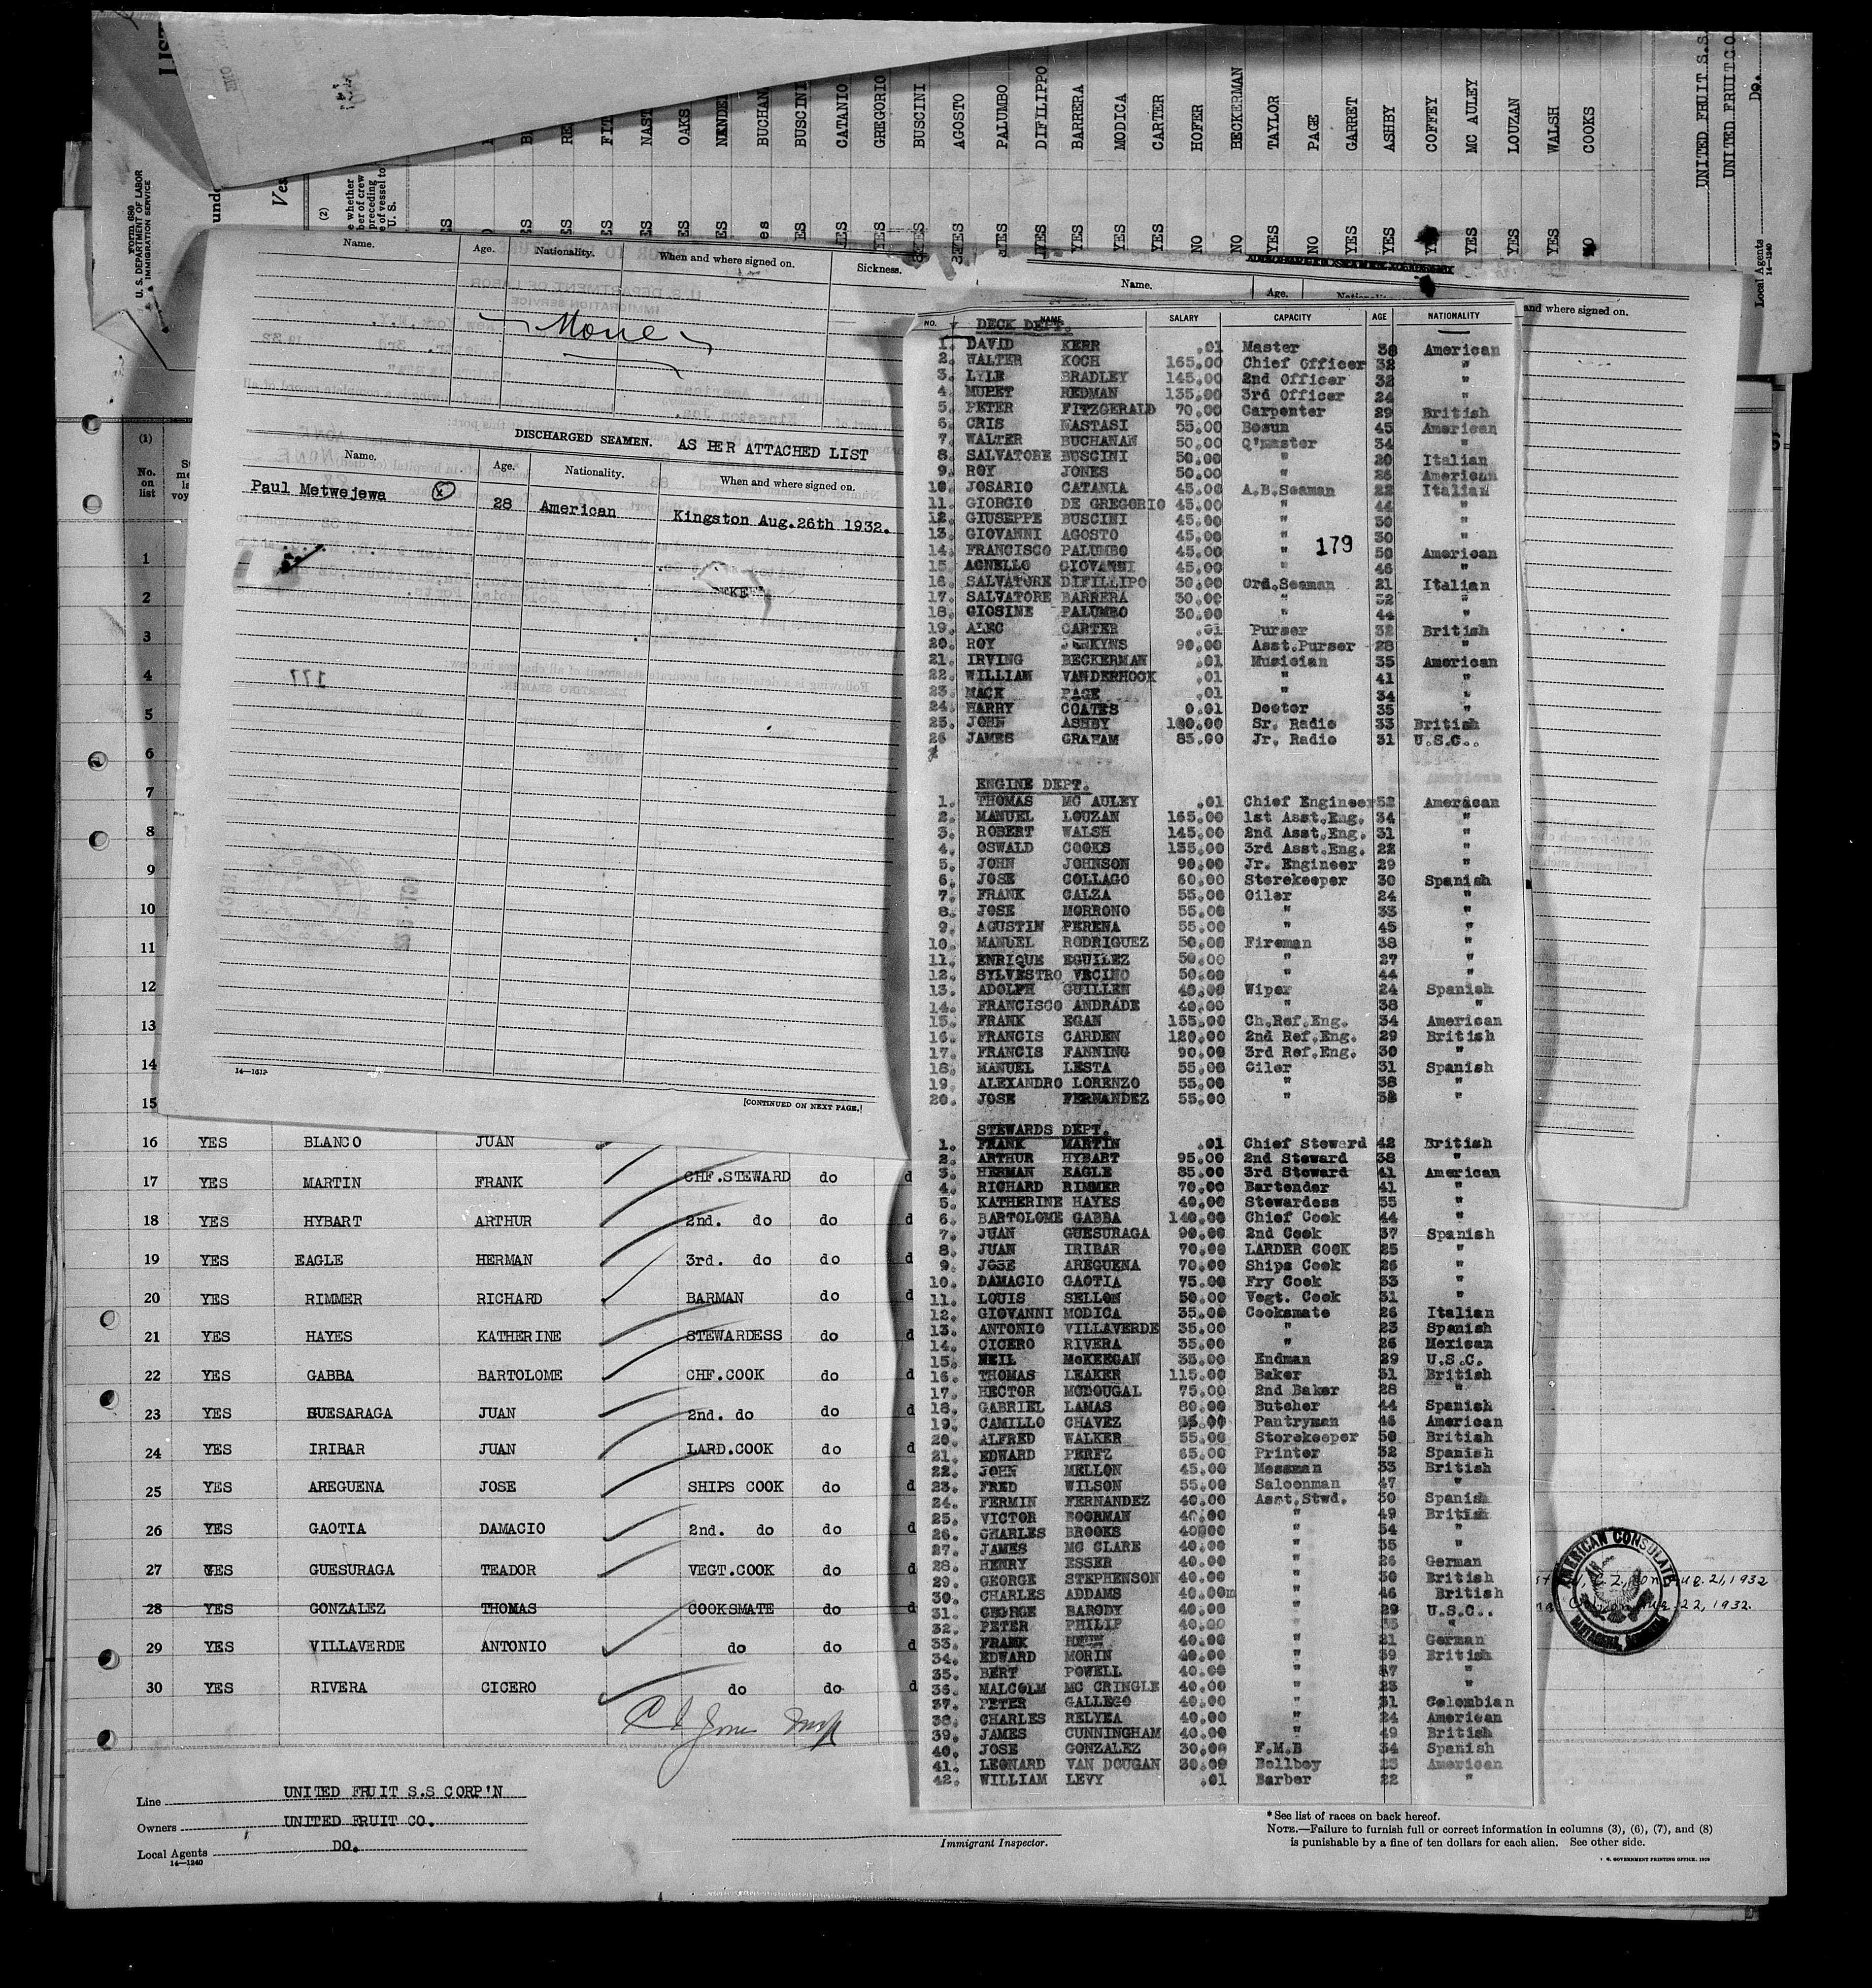 LIST
Form 680
U. S. DEPARTMENT OF LABOR
IMMIGRATION SERVICE
Ves
(2)
whether
ber of crew
preceding
e of vessel to
U. S.
BUSCINI
CATANIO
GREGORIO
BUSCINI
AGOSTO
PALUMBO
DIFILIPO
BARRERA
MODICA
CARTER
HOFER
BECKERMAN
TAYLOR
PAGE
GARRET
ASHBY
COFFEY
MC AULEY
LOUZAN
WALSH
COOKS
YES
YES
YES
NO
NO
YES
NO
YES
YES
YES
YES
YES
YES
NO
UNITED FRUIT S.S.
UNITED FRUIT CO.
Do.
Local Agents
14—1240
Name. Age. Nationality. When and where signed on. Sickness.
None
DISCHARGED SEAMEN. AS PER ATTACHED LIST
Name. Age. Nationality. When and where signed on.
Paul Metwejewa 28 American Kingston Aug.26th 1932.
177
[CONTINUED ON NEXT PAGE.]
Name. Age. and where signed on.
NO. NAME SALARY CAPACITY AGE NATIONALITY
DECK DEPT.
1. DAVID KERR .01 Master 38 American
2. WALTER KOCH 165.00 Chief Officer 32 "
3. LYLE BRADLEY 145.00 2nd Officer 32 "
4. MUPET REDMAN 135.00 3rd Officer 24 "
5. PETER FITZGERALD 70.00 Carpenter 29 British
6. CRIS NASTASI 55.00 Bosun 45 American
7. WALTER BUCHANAN 50.00 Q'master 34 "
8. SALVATORE BUSCINI 50.00 " 20 Italian
9. ROY JONES 50.00 " 26 American
10. JOSARIO CATANIA 45.00 A.B.Seaman 22 Italian
11. GIORGIO DE GREGORIO 45.00 " 44 "
12. GIUSEPPE BUSCINI 45.00 " 30 "
13. GIOVANNI AGOSTO 45.00 " 30 "
179
14. FRANCISCO PALUMBO 45.00 " 50 American
15. AGNELLO GIOVANNI 45.00 " 46 "
16. SALVATORE DIFILLIPO 30.00 Ord.Seaman 21 Italian
17. SALVATORE BARRERA 30.00 " 32 "
18. GIOSINE PALUMBO 30.00 " 44 "
19. ALEC CARTER .01 Purser 32 British
20. ROY JENKYNS 90.00 Asst.Purser 28 "
21. IRVING BECKERMAN .01 Musician 35 American
22. WILLIAM VANDERHOOK .01 " 41 "
23. MACK PAGE .01 " 34 "
24. HARRY COATES 0.01 Doctor 35 "
25. JOHN ASHBY 100.00 Sr. Radio 33 British
26 JAMES GRAHAM 85.00 Jr. Radio 31 U.S.C..
ENGINE DEPT.
1. THOMAS MC AULEY .01 Chief Engineer 52 American
2. MANUEL LOUZAN 165.00 1st Asst.Eng. 34 "
3. ROBERT WALSH 145.00 2nd Asst.Eng. 31 "
4. OSWALD COOKS 135.00 3rd Asst.Eng. 22 "
5. JOHN JOHNSON 90.00 Jr. Engineer 29 "
6. JOSE COLLAGO 60.00 Storekeeper 30 Spanish
7. FRANK CALZA 55.00 Oiler 24 "
8. JOSE MORRONO 55.00 " 33 "
9. AGUSTIN PERENA 55.00 " 45 "
10. MANUEL RODRIGUEZ 50.00 Fireman 38 "
11. ENRIQUE EGUILEZ 50.00 " 27 "
12. SYLVESTRO VECINO 50.00 " 44 "
13. ADOLPH GUILLEN 40.00 Wiper 24 Spanish
14. FRANCISCO ANDRADE 40.00 " 38 "
15. FRANK EGAN 155.00 Ch.Ref.Eng. 34 American
16. FRANCIS CARDEN 120.00 2nd Ref.Eng. 29 British
17. FRANCIS FANNING 90.00 3rd Ref.Eng. 30 "
18. MANUEL LESTA 55.00 Oiler 31 Spanish
19. ALEXANDRO LORENZO 55.00 " 38 "
20. JOSE FERNANDEZ 55.00 " 38 "
STEWARDS DEPT.
1. FRANK MARTIN .01 Chief Steward 42 British
2. ARTHUR HYBART 95.00 2nd Steward 38 "
3. HERMAN EAGLE 85.00 3rd Steward 41 American
4. RICHARD RIMMER 70.00 Bartender 41 "
5. KATHERINE HAYES 40.00 Stewardess 55 "
6. BARTOLOME GABBA 140.00 Chief Cook 44 "
7. JUAN GUESURAGA 90.00 2nd Cook 37 Spanish
8. JUAN IRIBAR 70.00 LARDER COOK 25 "
9. JOSE AREGUENA 70.00 Ships Cook 26 "
10. DAMACIO GAOTIA 75.00 Fry Cook 33 "
11. LOUIS SELLON 50.00 Vegt. Cook 31 "
12. GIOVANNI MODICA 35.00 Cooksmate 26 Italian
13. ANTONIO VILLAVERDE 35.00 " 23 Spanish
14. CICERO RIVERA 35.00 " 26 Mexican
15. NEIL McKEEGAN 35.00 Endman 29 U.S.C.
16. THOMAS LEAKER 115.00 Baker 31 British
17. HECTOR MCDOUGAL 75.00 2nd Baker 28 "
18. GABRIEL LAMAS 80.00 Butcher 44 Spanish
19. CAMILLO CHAVEZ Pantryman 46 American
20. ALFRED WALKER 55.00 Storekeeper 50 British
21. EDWARD PEREZ 65.00 Printer 32 Spanish
22. JOHN MELLON 45.00 Messman 33 British
23. FRED WILSON 55.00 Saloonman 47 "
24. FERMIN FERNANDEZ 40.00 Asst.Stwd. 30 Spanish
25. VICTOR BOORMAN 40.00 " 49 British
26. CHARLES BROOKS 40000 " 34 "
27. JAMES MC CLARE 40.00 " 35 "
28. HENRY ESSER 40.00 " 26 German
29. GEORGE STEPHENSON 40.00 " 30 British
30. CHARLES ADDAMS 40.00m " 46 British
31. GEORGE BARODY 40.00 " 29 U.S.C..
32. PETER PHILIP 40.00 " 35 "
33. FRANK 40.00 " 21 German
34. EDWARD MORIN 40.00 " 39 British
35. BERT POWELL 40.00 " 47 "
36. MALCOLM MC CRINGLE 40.00 " 23 "
37. PETER GALLEGO 40.00 " 31 Colombian
38. CHARLES RELYEA 40.00 " 24 American
39. JAMES CUNNINGHAM 40.00 " 49 British
40. JOSE GONZALEZ 30.00 F.M.B 34 Spanish
41. LEONARD VAN DOUGAN 30.00 Bellboy 23 American
42. WILLIAM LEVY .01 Barber 22 "
(1)
No.
on
list
1
2
3
4
5
6
7
8
9
10
11
12
13
14
15
16 YES BLANCO JUAN
17 YES MARTIN FRANK CHF.STEWARD do
18 YES HYBART ARTHUR 2nd. do do
19 YES EAGLE HERMAN 3rd. do do
20 YES RIMMER RICHARD BARMAN do
21 YES HAYES KATHERINE STEWARDESS do
22 YES GABBA BARTOLOME CHF.COOK do
23 YES GUESARAGA JUAN 2nd. do do
24 YES IRIBAR JUAN LARD.COOK do
25 YES AREGUENA JOSE SHIPS COOK do
26 YES GAOTIA DAMACIO 2nd. do do
27 YES GUESURAGA TEADOR VEGT.COOK do
28 YES GONZALEZ THOMAS COOKSMATE do
29 YES VILLAVERDE ANTONIO do do
30 YES RIVERA CICERO do do
AMERICAN CONSULATE
21, 1932
22, 1932.
Line UNITED FRUIT S.S CORP'N
Owners UNITED FRUIT CO.
Local Agents DO.
14—1240
Immigrant Inspector.
* See list of races on back hereof.
NOTE.—Failure to furnish full or correct information in columns (3), (6), (7), and (8)
is punishable by a fine of ten dollars for each alien. See other side.